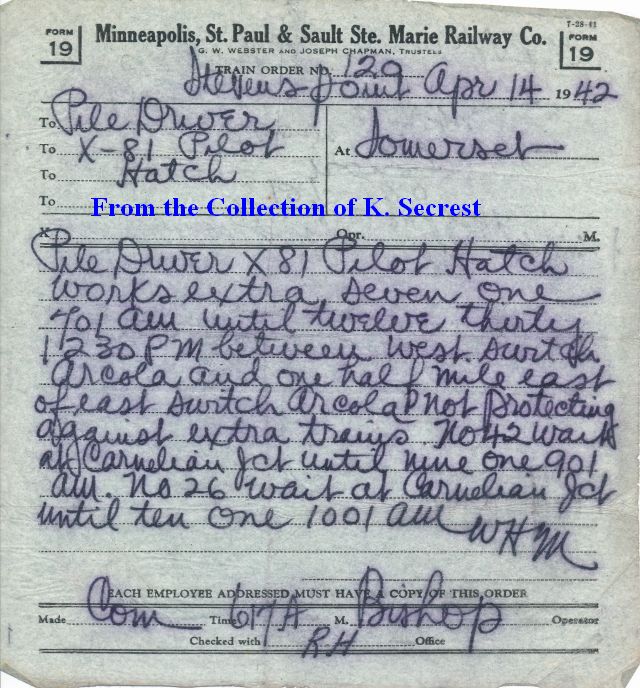 7-28-41
FORM 19
Minneapolis, St. Paul & Sault Ste. Marie Railway Co.
FORM 19
G. W. WEBSTER AND JOSEPH CHAPMAN, TRUSTEES
TRAIN ORDER NO. 129
Stevens Point Apr 14 1942
To Pile Driver
To X-81 Pilot
At Somerset
To Hatch
To
From the Collection of K. Secrest
X Opr. M.
Pile Driver X 81 Pilot Hatch
works extra seven one
701 am until twelve thirty
1230 PM between West switch
Arcola and one half mile east
of east switch Arcola not protecting
against extra trains No 42 wait
at Carnelian Jct until nine one 901
am. No 26 wait at Carnelian Jct
until ten one 1001 am
WHM
EACH EMPLOYEE ADDRESSED MUST HAVE A COPY OF THIS ORDER
Made Com Time 617 A M. Bishop Operator
Checked with RH Office